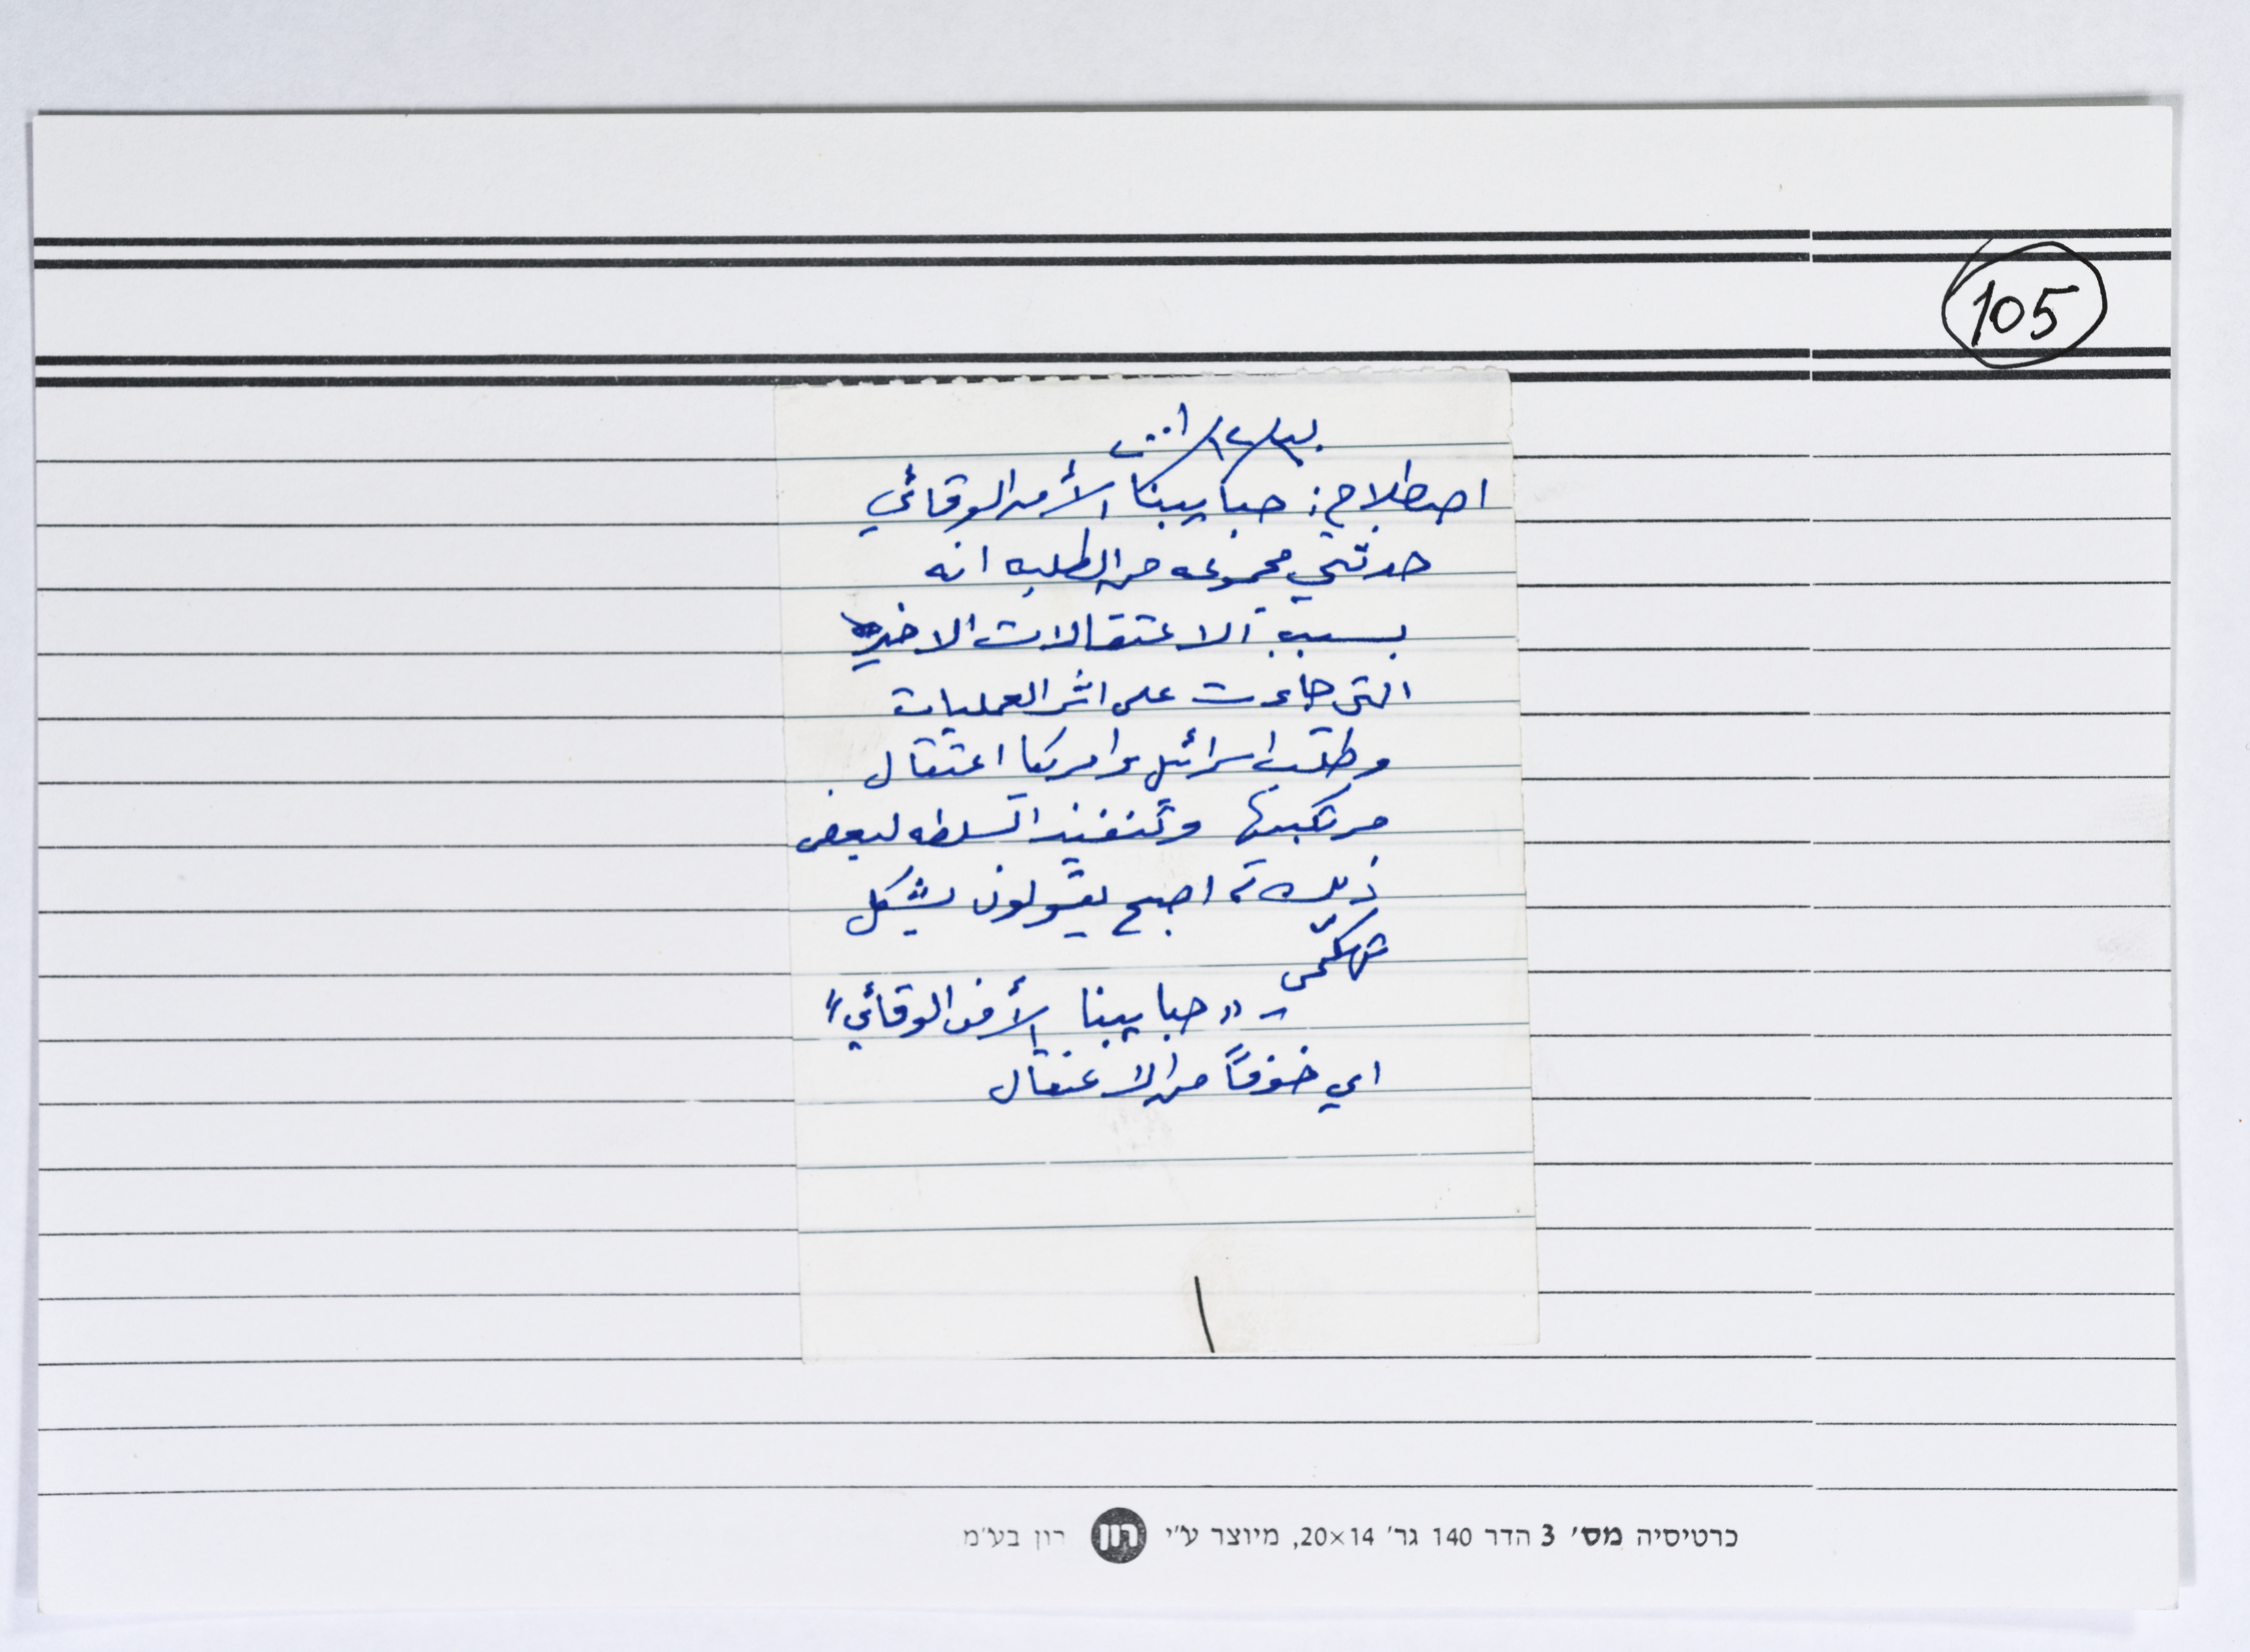 105
اصطلاح: حبايبنا الأمن الوقائي
حدثتني مجموعه من الطلبه انه
بسبب الاعتقالات الاخيره
التي جاءت على اثر العمليات
وطلب اسرائيل وامريكا اعتقال
مرتكبيها وتنفيذ السلطه لبعض
ذلك، اصبح يقولون بشكل
تهكّمي
- "حبايبنا الأمن الوقائي"
اي خوفاً من الاعتقال
כרטיסיה מס׳ 3 הדר 140 גר׳ 20×14, מיוצר ע״י רון רון בע״מ